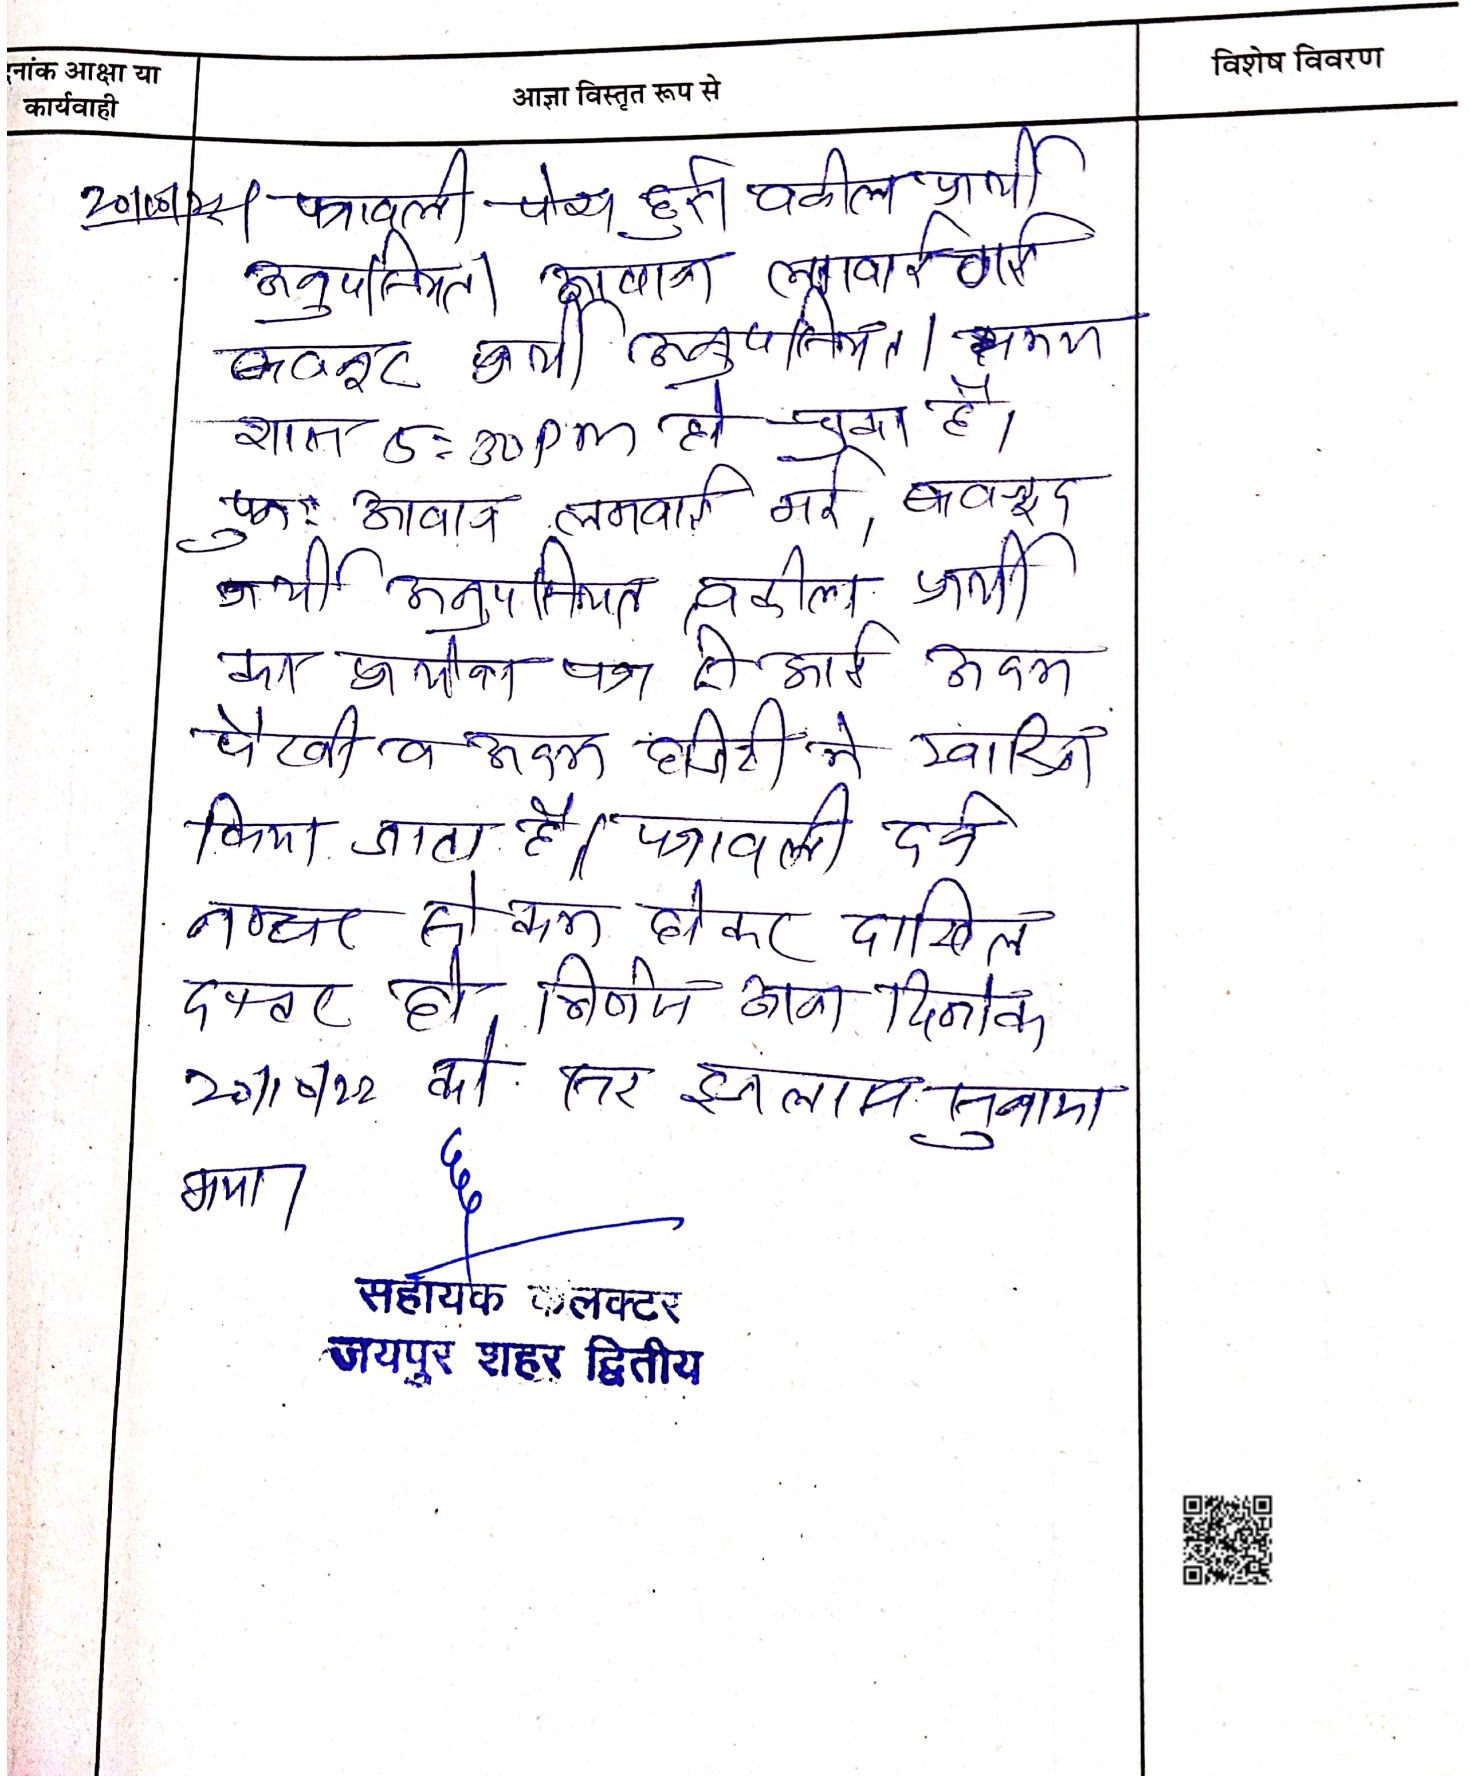 दिनांक आज्ञा या
कार्यवाही
आज्ञा विस्तृत रूप से
विशेष विवरण
पत्रावली पेश हुई। वकील प्रार्थी
अनुपस्थित। आवाज लगवाई गई
बावजूद प्रार्थी अनुपस्थित। समय
शाम 5:30 PM हो चुका है।
पुनः आवाज लगवाई गई, बावजूद
प्रार्थी अनुपस्थित, वकील प्रार्थी
का प्रार्थना पत्र टी आई अदम
पैरवी व अदम हाजिरी में खारिज
किया जाता है। पत्रावली दर्ज
नम्बर से कम होकर दाखिल
दफ्तर हो, निर्णय आज दिनांक
20/10/22 को सर इजलास सुनाया
गया।
सहायक कलक्टर
जयपुर शहर द्वितीय